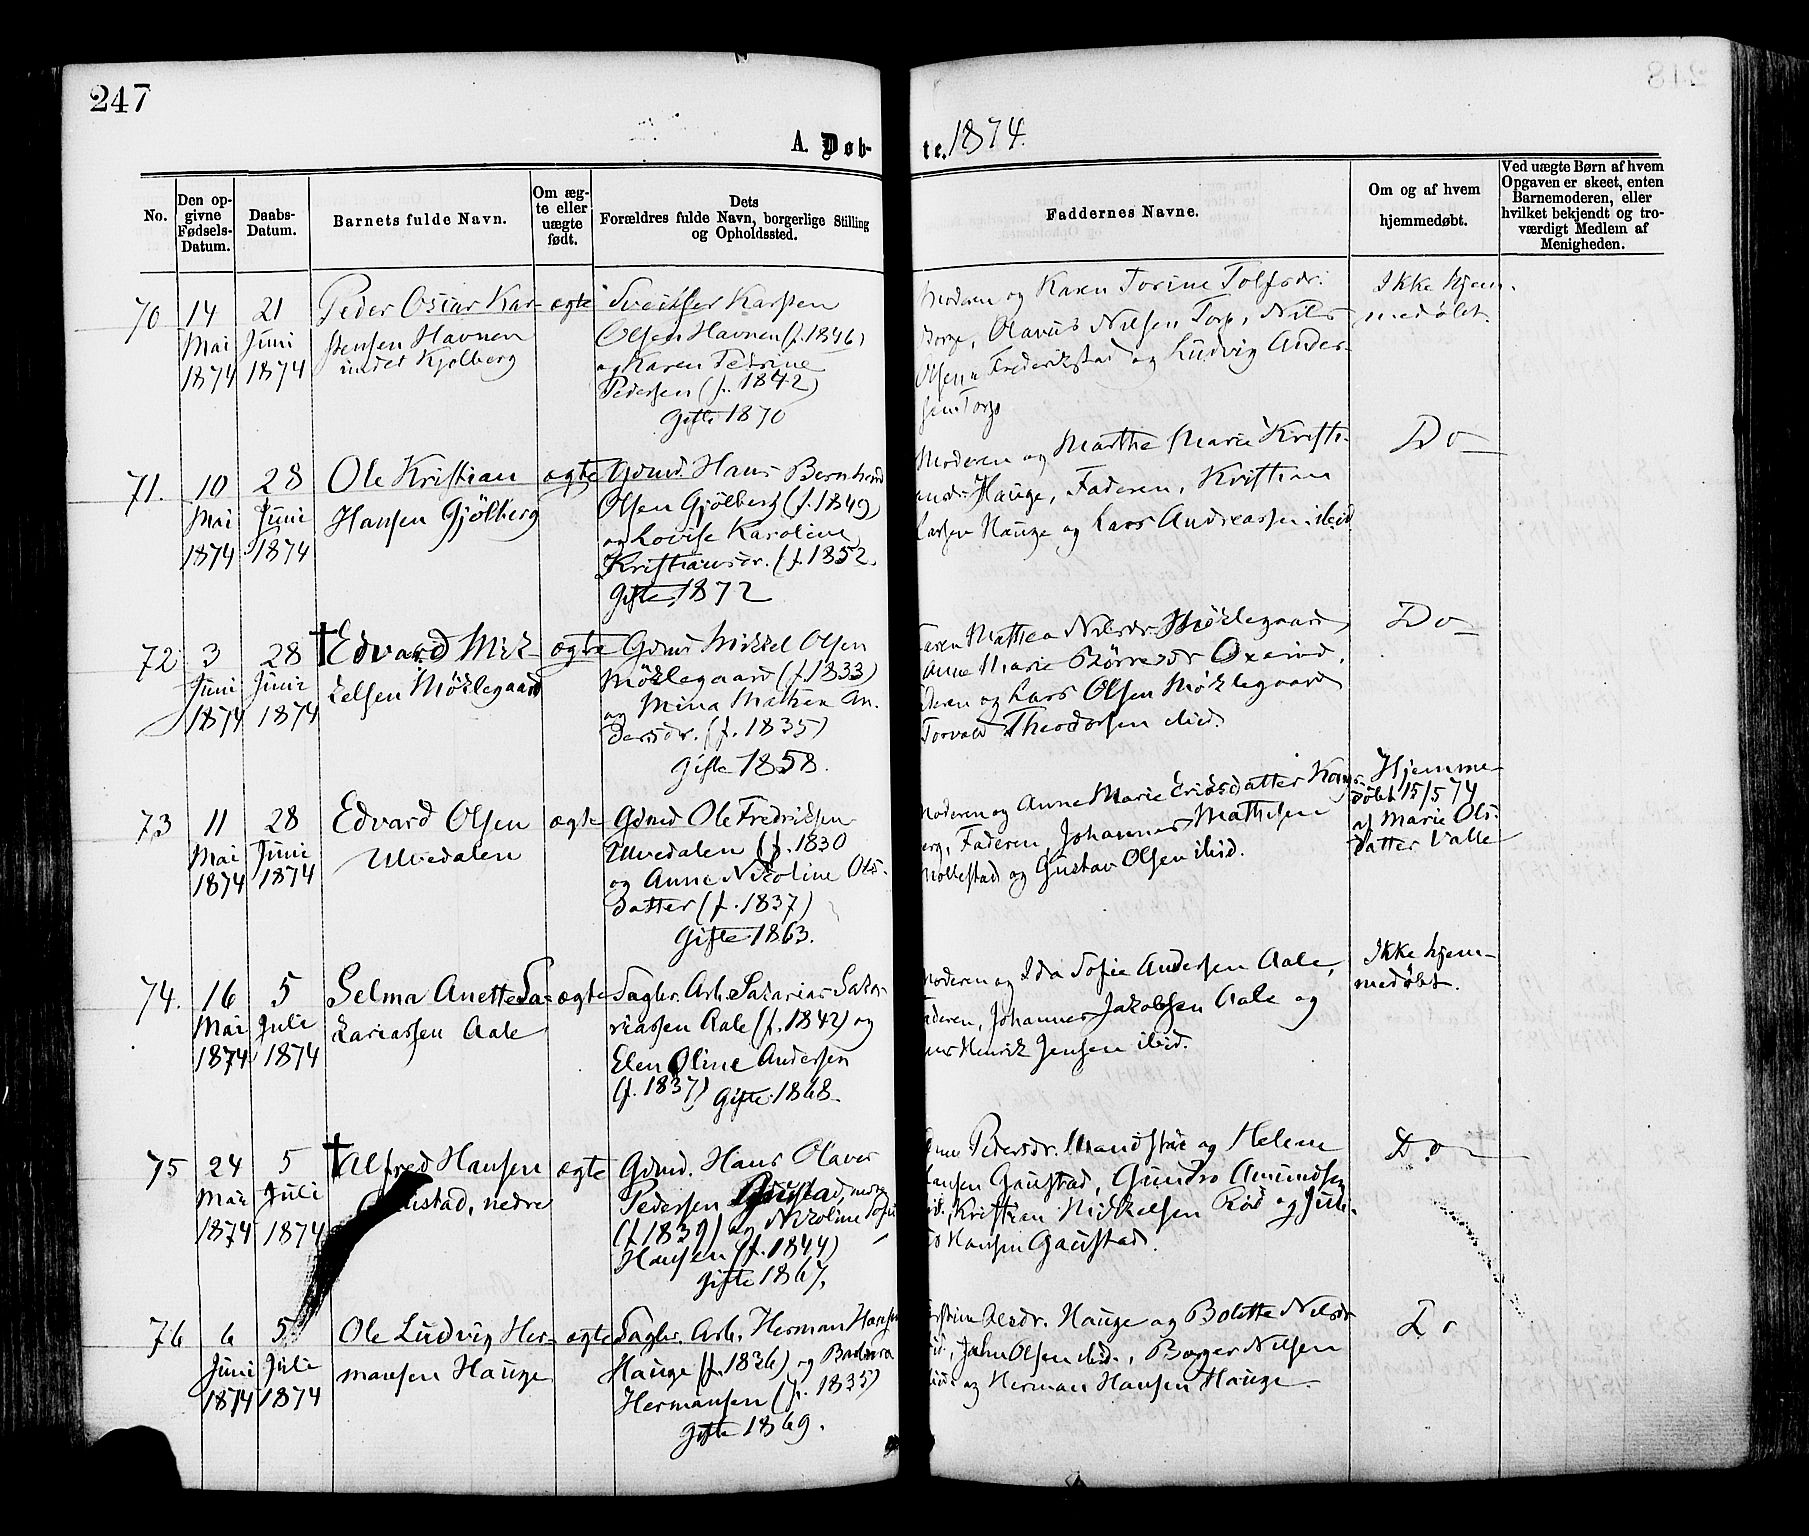 247
A. Døb-
te. 1874.
No.
Den op-
givne
Fødsels-
Datum.
Daabs-
Datum.
Barnets fulde Navn.
Om æg-
te eller
uægte
født.
Dets
Forældres fulde Navn, borgerlige Stilling
og Opholdssted.
Faddernes Navne.
Om og af hvem
hjemmedøbt.
Ved uægte Børn af hvem
Opgaven er skeet, enten
Barnemoderen, eller
hvilket bekjendt og tro-
værdigt Medlem af
Menigheden.
70
14
Mai
1874
21
Juni
1874
Peder Oscar Kar-
stensen Havnen
under Kjølberg
ægte
Karsten
Olsen Havnen (f. 1846)
og Karen Petrine
Pedersen (f. 1842)
Gifte 1870
Moderen og Karen Torine Tolfsdr.
Torp, Olavus Nilsen Torp, Nils
Olsen Frederikstad og Ludvig Ander-
sen Torp
Ikke hjem-
medøbt.
71.
10
Mai
1874
28
Juni
1874
Ole Kristian
Hansen Gjölberg
ægte
Gdmd. Hans Bernhard
Olsen Gjölberg (f. 1849)
og Lovise Karoline
Kristiansdr. (f. 1852.
Gifte 1872
Moderen og Marthe Marie Kristi-
ansdr Hauge, Faderen, Kristian
Larsen Hauge og Lars Andreassen ibid
Do
72
3
Juni
1874
28
Juni
1874
† Edvard Mik-
kelsen Möklegaard
ægte
Gdmd Mikkel Olsen
Möklegaard (f. 1833)
og Mina Mathea An-
dersdr. (f. 1835)
Gifte 1858.
Karen Mathea Nilsdr Möklegaard
Anne Marie Börresdr Oxerød,
Faderen og Lars Olsen Möklegaard
Torvald Theodorsen ibid.
Do
73
11
Mai
1874
28
Juni
1874
Edvard Olsen
Ulvedalen
ægte
Gdmd Ole Fredriksen
Ulvedalen (f. 1830
og Anne Nikoline Ols-
datter (f. 1837)
Gifte 1863.
Moderen og Anne Marie Eriksdatter Kongs-
berg, Faderen, Johannes Mathisen
Mollestad og Gustav Olsen ibid.
Hjemme-
døbt 15/5 74
af Marie Ols-
datter Valle
74.
16
Mai
1874
5
Juli
1874
Selma Anette Sa-
kariassen Aale
ægte
Sagbr. Arb. Sakarias Saka-
riassen Aale (f. 1842) og
Elen Oline Andersen
(f. 1837) Gifte 1868.
Moderen og Ida Sofie Andersen Aale,
Faderen, Johannes Jakobsen Aale og
Hans Henrik Jensen ibid.
Ikke hjem-
medøbt.
75
24
Mai
1874
5
Juli
1874
† Alfred Hansen
Gaustad, nedre
ægte
Gdmd. Hans Olaves
Pedersen Gaustad, nedre
(f. 1839) og Nikoline Sofie
Hansen (f. 1844)
Gifte 1867,
Pedersdr. og Helene
Hansen Gaustad, Gundro Amundsen
ibid., Kristian Mikkelsen Röd og Juli-
us Hansen Gaustad.
Do
76
6
Juni
1874
5
Juli
1874
Ole Ludvig Her-
mansen Hauge
ægte
Sagbr. Arb. Herman Hansen
Hauge (f. 1836) og Barbara
Hermansen (f. 1835)
Gifte 1869.
Olsdr. Hauge og Bolette Nilsdr
ibid, John Olsen ibid., Borger Nilsen
og Herman Hansen Hauge.
Do